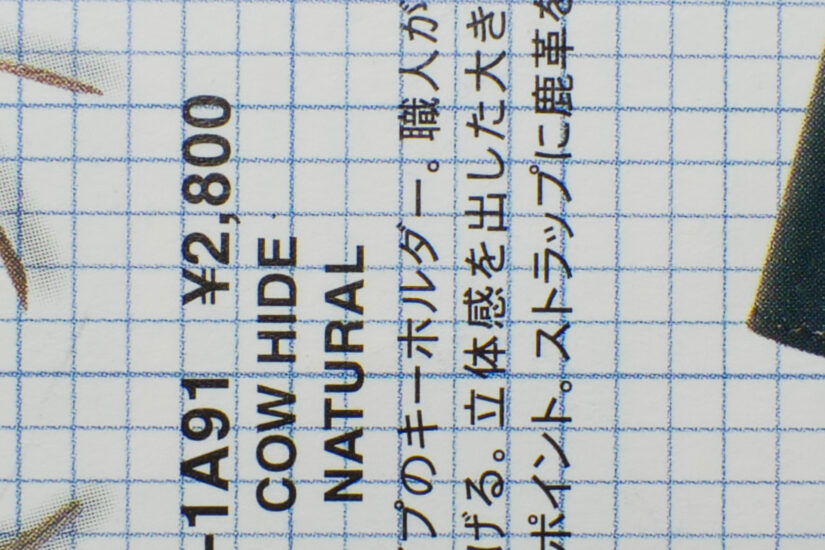 -1A91 ¥2,800
COW HIDE
NATURAL
プのキーホルダー。職人が
げる。立体感を出した大き
ポイント。ストラップに鹿革を